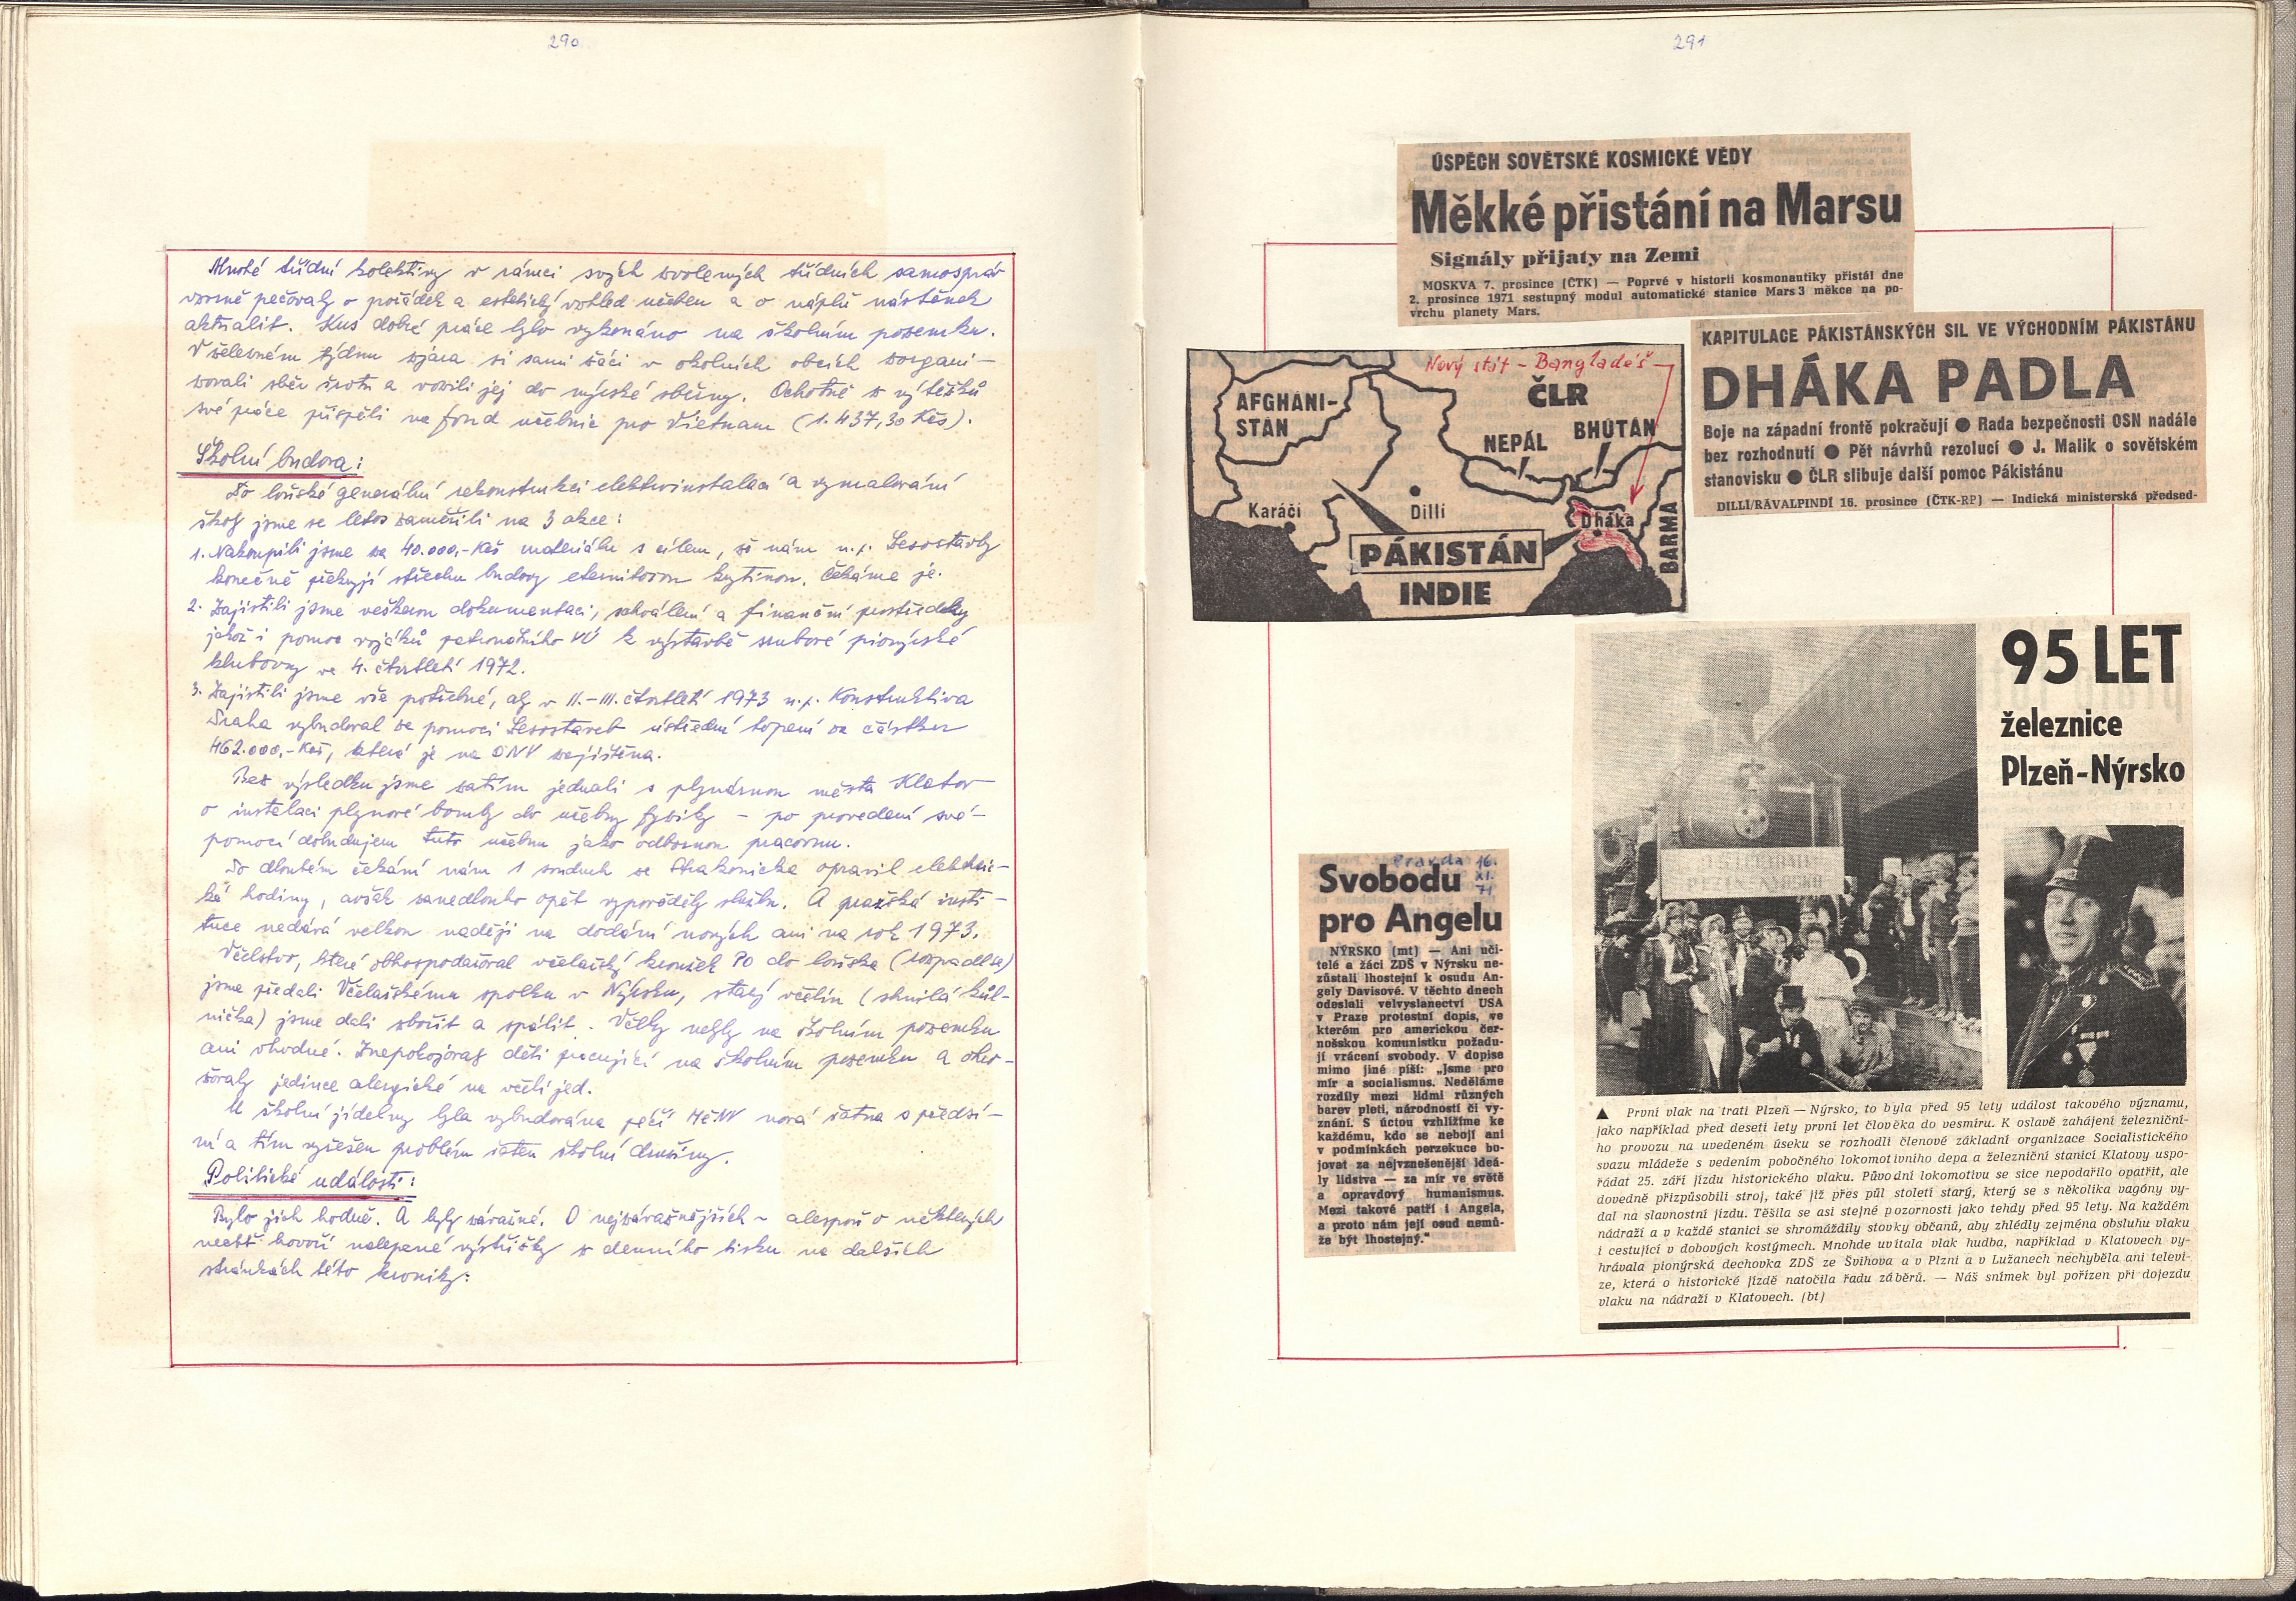 290
Mnohé třídní kolektivy v rámci svých zvolených třídních samospráv
vzorně pečovaly o pořádek a estetický vzhled učeben a o náplň nástěnek
aktualit. Kus dobré práce bylo vykonáno na školním pozemku.
V zeleném týdnu zjara si sami žáci v okolních obcích zorgani-
zovali sběr šrotu a vozili jej do nýrské sběrny. Ochotně z výtěžků
své práce přispěli na fond učebnic pro Vietnam (1.437,30 Kčs).
Školní budova:
Po loňské generální rekonstrukci elektroinstalací a vymalování
školy jsme se letos zaměřili na 3 akce:
1. Nakoupili jsme za 40.000,-Kčs materiálu s cílem, že nám n.p. Lesostavby
konečně překryjí střechu budovy eternitovou krytinou. Čekáme je.
2. Zajistili jsme veškerou dokumentaci, schválení a finanční prostředky
jakož i pomoc vojáků patronátního VÚ k výstavbě srubové pionýrské
klubovny ve 4. čtvrtletí 1972.
3. Zajistili jsme vše potřebné, aby v II.-III. čtvrtletí 1973 n.p. Konstruktiva
Praha vybudoval za pomoci Lesostaveb ústřední topení za částku
462.000,-Kčs, která je na ONV zajištěna.
Bez výsledku jsme zatím jednali s plynárnou města Klatov
o instalaci plynové bomby do učebny fyziky - po provedení své-
pomocí dobudujem tuto učebnu jako odbornou pracovnu.
Po dlouhém čekání nám 1 soudruh ze Strakonicka opravil elektric-
ké hodiny, avšak zanedlouho opět vypověděly službu. A pražská insti-
tuce nedává velkou naději na dodání nových ani na rok 1973.
Včelstvo, které obhospodařoval včelařský kroužek PO do loňska (rozpadl se)
jsme předali Včelařskému spolku v Nýrsku, starý včelín (shnilá kůl-
nička) jsme dali zbořit a spálit. Včely nebyly na školním pozemku
ani vhodné. Znepokojovaly děti pracující na školním pozemku a ohro-
žovaly jedince alergické na včelí jed.
U školní jídelny byla vybudována péčí MěNV nová šatna s předsí-
ní a tím vyřešen problém šaten školní družiny.
Politické události:
Bylo jich hodně. A byly závažné. O nejzávažnějších - alespoň o některých
nechť hovoří nalepené výstřižky z denního tisku na dalších
stránkách této kroniky:
291
ÚSPĚCH SOVĚTSKÉ KOSMICKÉ VĚDY
Měkké přistání na Marsu
Signály přijaty na Zemi
MOSKVA 7. prosince (ČTK) — Poprvé v historii kosmonautiky přistál dne
2. prosince 1971 sestupný modul automatické stanice Mars 3 měkce na po-
vrchu planety Mars.
KAPITULACE PÁKISTÁNSKÝCH SIL VE VÝCHODNÍM PÁKISTÁNU
DHÁKA PADLA
Boje na západní frontě pokračují ● Rada bezpečnosti OSN nadále
bez rozhodnutí ● Pět návrhů rezolucí ● J. Malik o sovětském
stanovisku ● ČLR slibuje další pomoc Pákistánu
DILLÍ/RÁVALPINDÍ 16. prosince (ČTK-RP) — Indická ministerská předsed-
Nový stát - Bangladéš
AFGHÁNI-
STÁN
ČLR
NEPÁL
BHÚTÁN
Karáčí
Dillí
Dháka
BARMA
PÁKISTÁN
INDIE
95 LET
železnice
Plzeň-Nýrsko
95 LET TRATI
PLZEŇ-NÝRSKO
▲ První vlak na trati Plzeň — Nýrsko, to byla před 95 lety událost takového významu,
jako například před deseti lety první let člověka do vesmíru. K oslavě zahájení železniční-
ho provozu na uvedeném úseku se rozhodli členové základní organizace Socialistického
svazu mládeže s vedením pobočného lokomotivního depa a železniční stanicí Klatovy uspo-
řádat 25. září jízdu historického vlaku. Původní lokomotivu se sice nepodařilo opatřit, ale
dovedně přizpůsobili stroj, také již přes půl století starý, který se s několika vagóny vy-
dal na slavnostní jízdu. Těšila se asi stejné pozornosti jako tehdy před 95 lety. Na každém
nádraží a v každé stanici se shromáždily stovky občanů, aby zhlédly zejména obsluhu vlaku
i cestující v dobových kostýmech. Mnohde uvítala vlak hudba, například v Klatovech vy-
hrávala pionýrská dechovka ZDŠ ze Švihova a v Plzni a v Lužanech nechyběla ani televi-
ze, která o historické jízdě natočila řadu záběrů. — Náš snímek byl pořízen při dojezdu
vlaku na nádraží v Klatovech. (bt)
Pravda 16.
XI.
71
Svobodu
pro Angelu
NÝRSKO (mt) — Ani uči-
telé a žáci ZDŠ v Nýrsku ne-
zůstali lhostejní k osudu An-
gely Davisové. V těchto dnech
odeslali velvyslanectví USA
v Praze protestní dopis, ve
kterém pro americkou čer-
nošskou komunistku požadu-
jí vrácení svobody. V dopise
mimo jiné píší: „Jsme pro
mír a socialismus. Neděláme
rozdíly mezi lidmi různých
barev pleti, národností či vy-
znání. S úctou vzhlížíme ke
každému, kdo se nebojí ani
v podmínkách perzekuce bo-
jovat za nejvznešenější ideá-
ly lidstva — za mír ve světě
a opravdový humanismus.
Mezi takové patří i Angela,
a proto nám její osud nemů-
že být lhostejný."